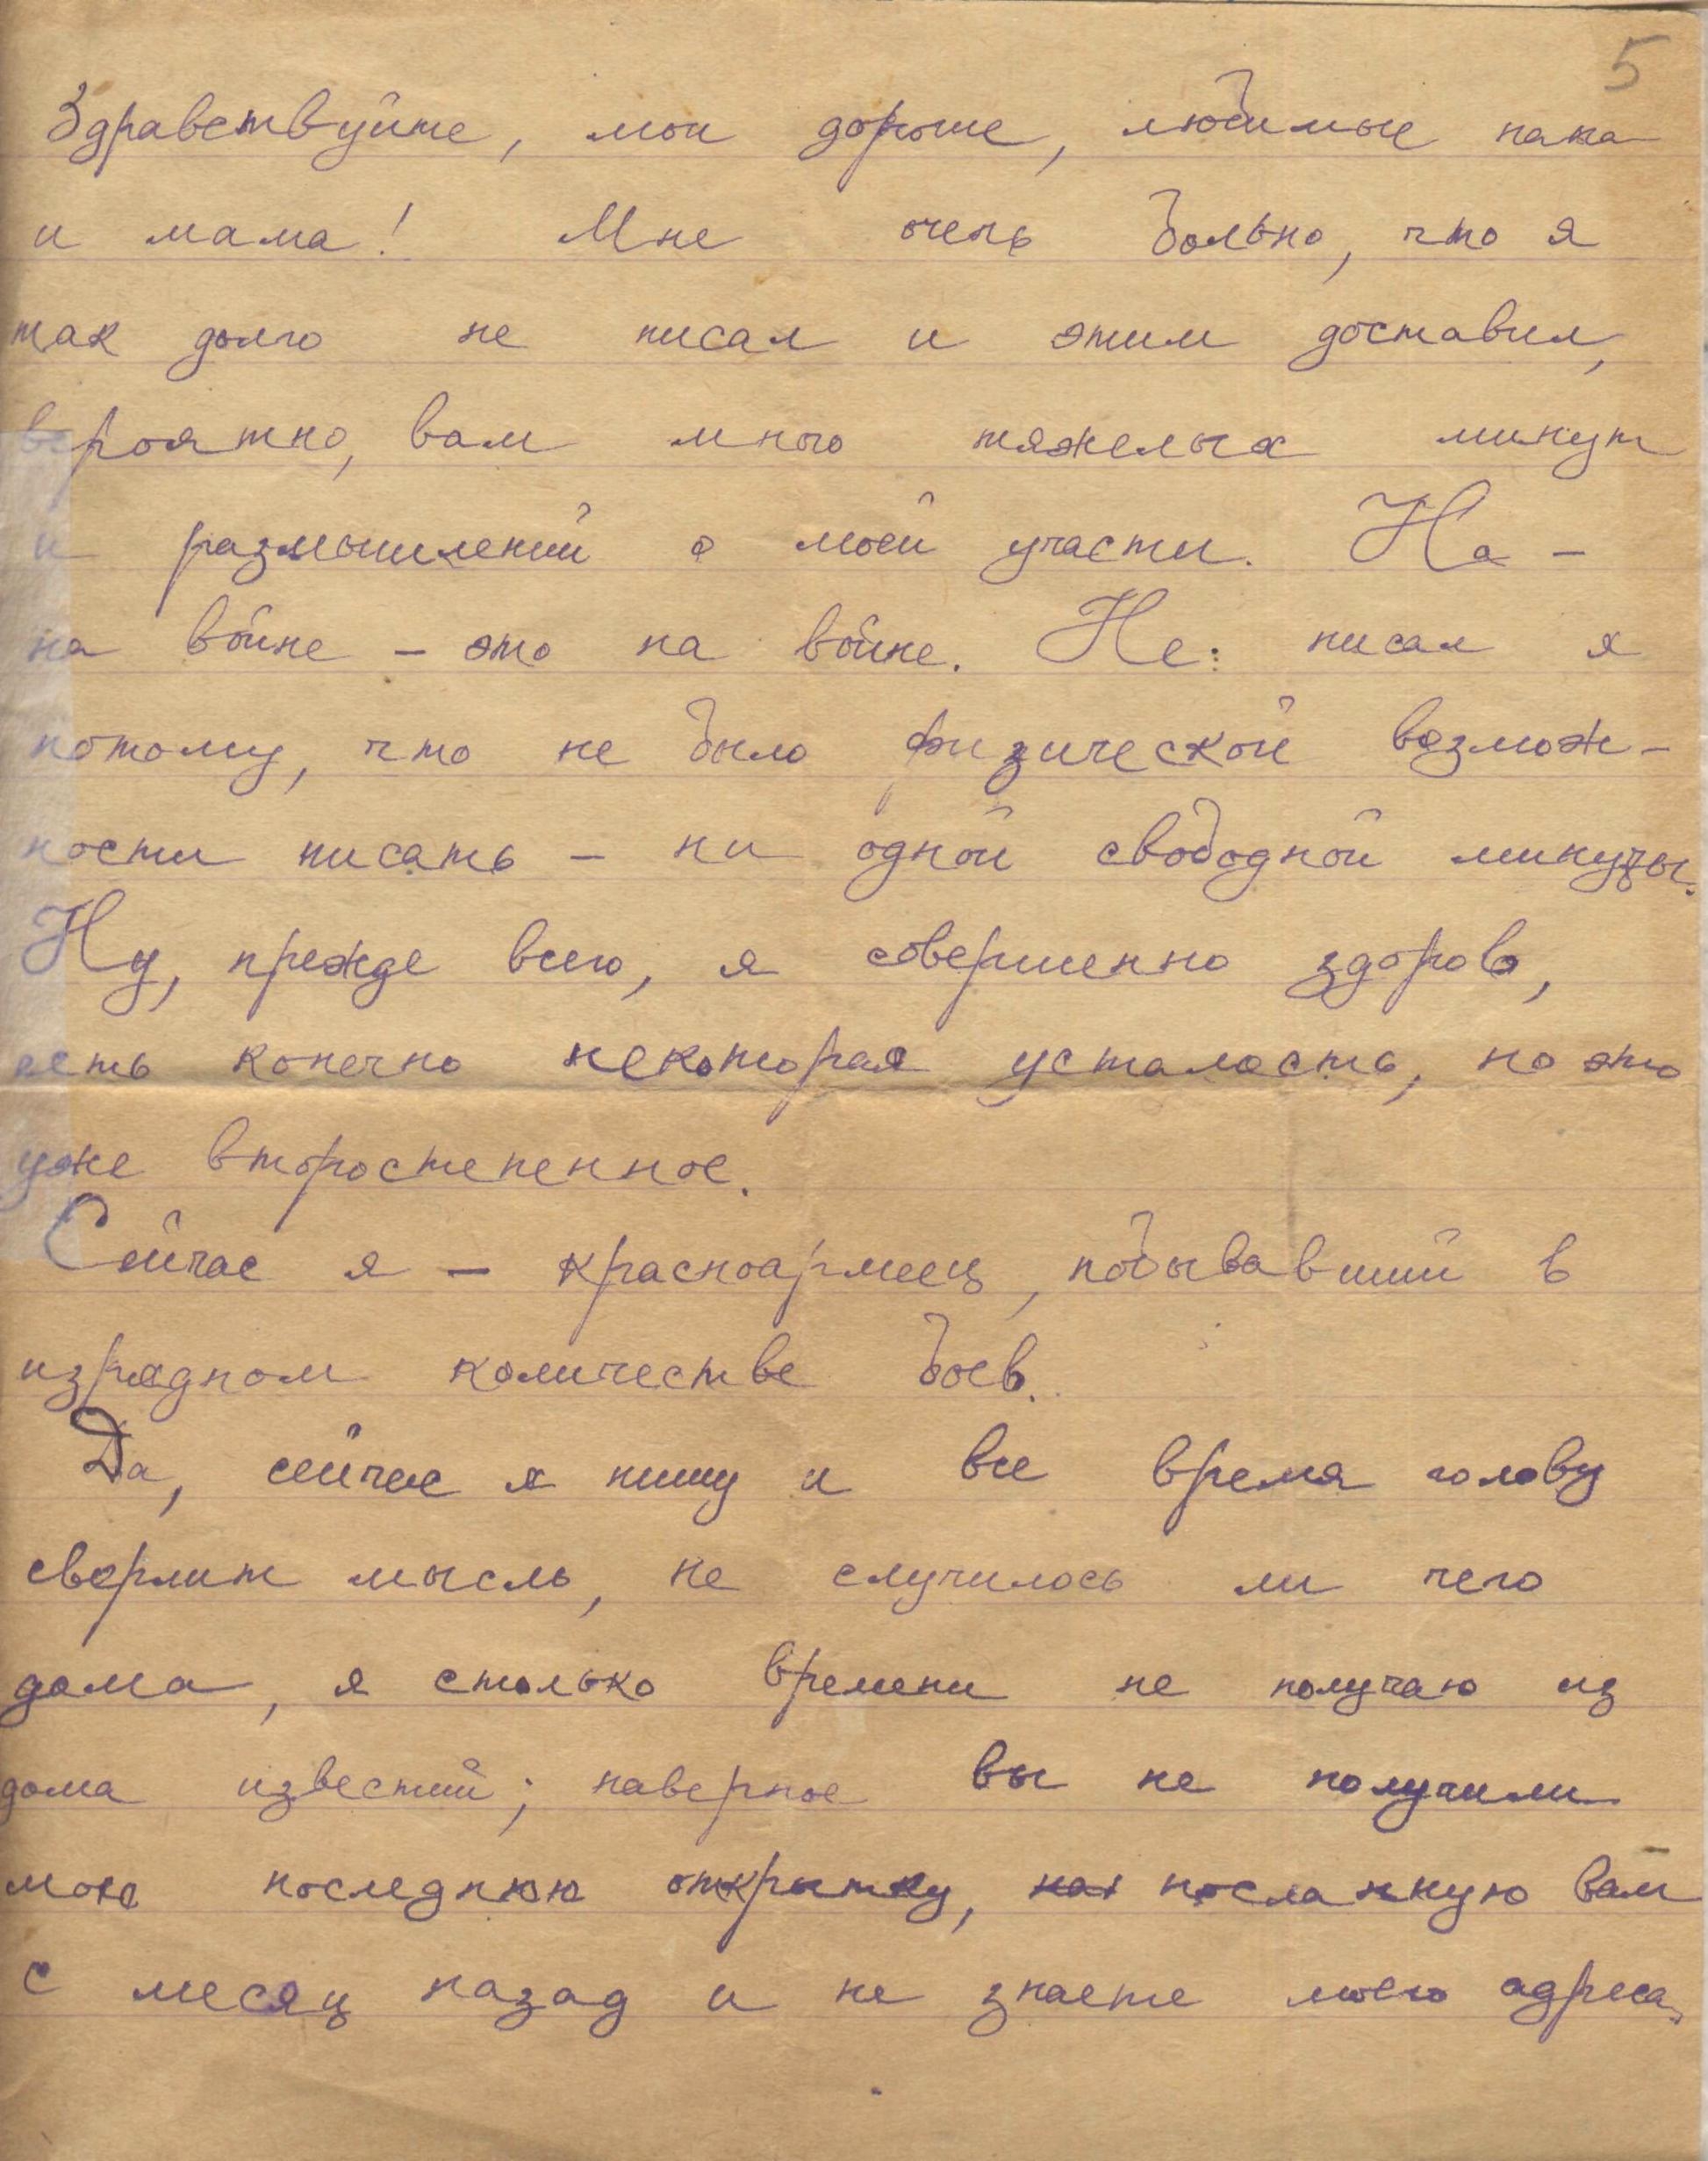 5
Здравствуйте, мои дорогие, любимые папа
и мама! Мне очень больно, что я
так долго не писал и этим доставил,
вероятно, вам много тяжелых минут
и размышлений о моей участи. На -
на войне - это на войне. Не писал я
потому, что не было физической возмож-
ности писать - ни одной свободной минуты.
Ну, прежде всего, я совершенно здоров,
есть конечно некоторая усталость, но это
уже второстепенное.
Сейчас я - красноармеец, побывавший в
изрядном количестве боев.
Да, сейчас я пишу и все время голову
сверлит мысль, не случилось ли чего
дома, я столько времени не получаю из
дома известий; наверное вы не получили
мою последнюю открытку, посланную вам
с месяц назад и не знаете моего адреса.